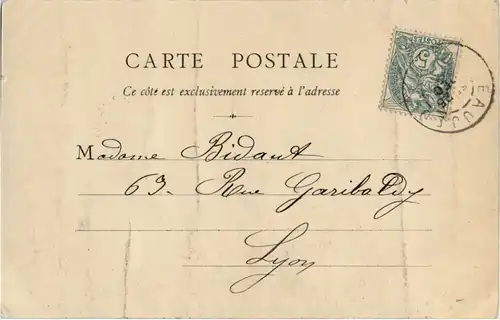 CARTE POSTALE
Ce côté est exclusivement reservé à l'adresse
Madame Bidaut
63. Rue Garibaldy
Lyon
5
BEAUJEU